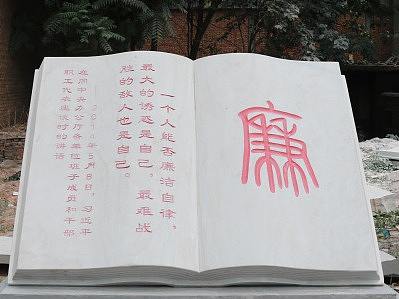 廉
一个人能否廉洁自律，
最大的诱惑是自己，最难战
胜的敌人也是自己。
2014年5月8日，习近平
在同中央办公厅各单位班子成员和干部
职工代表座谈时的讲话